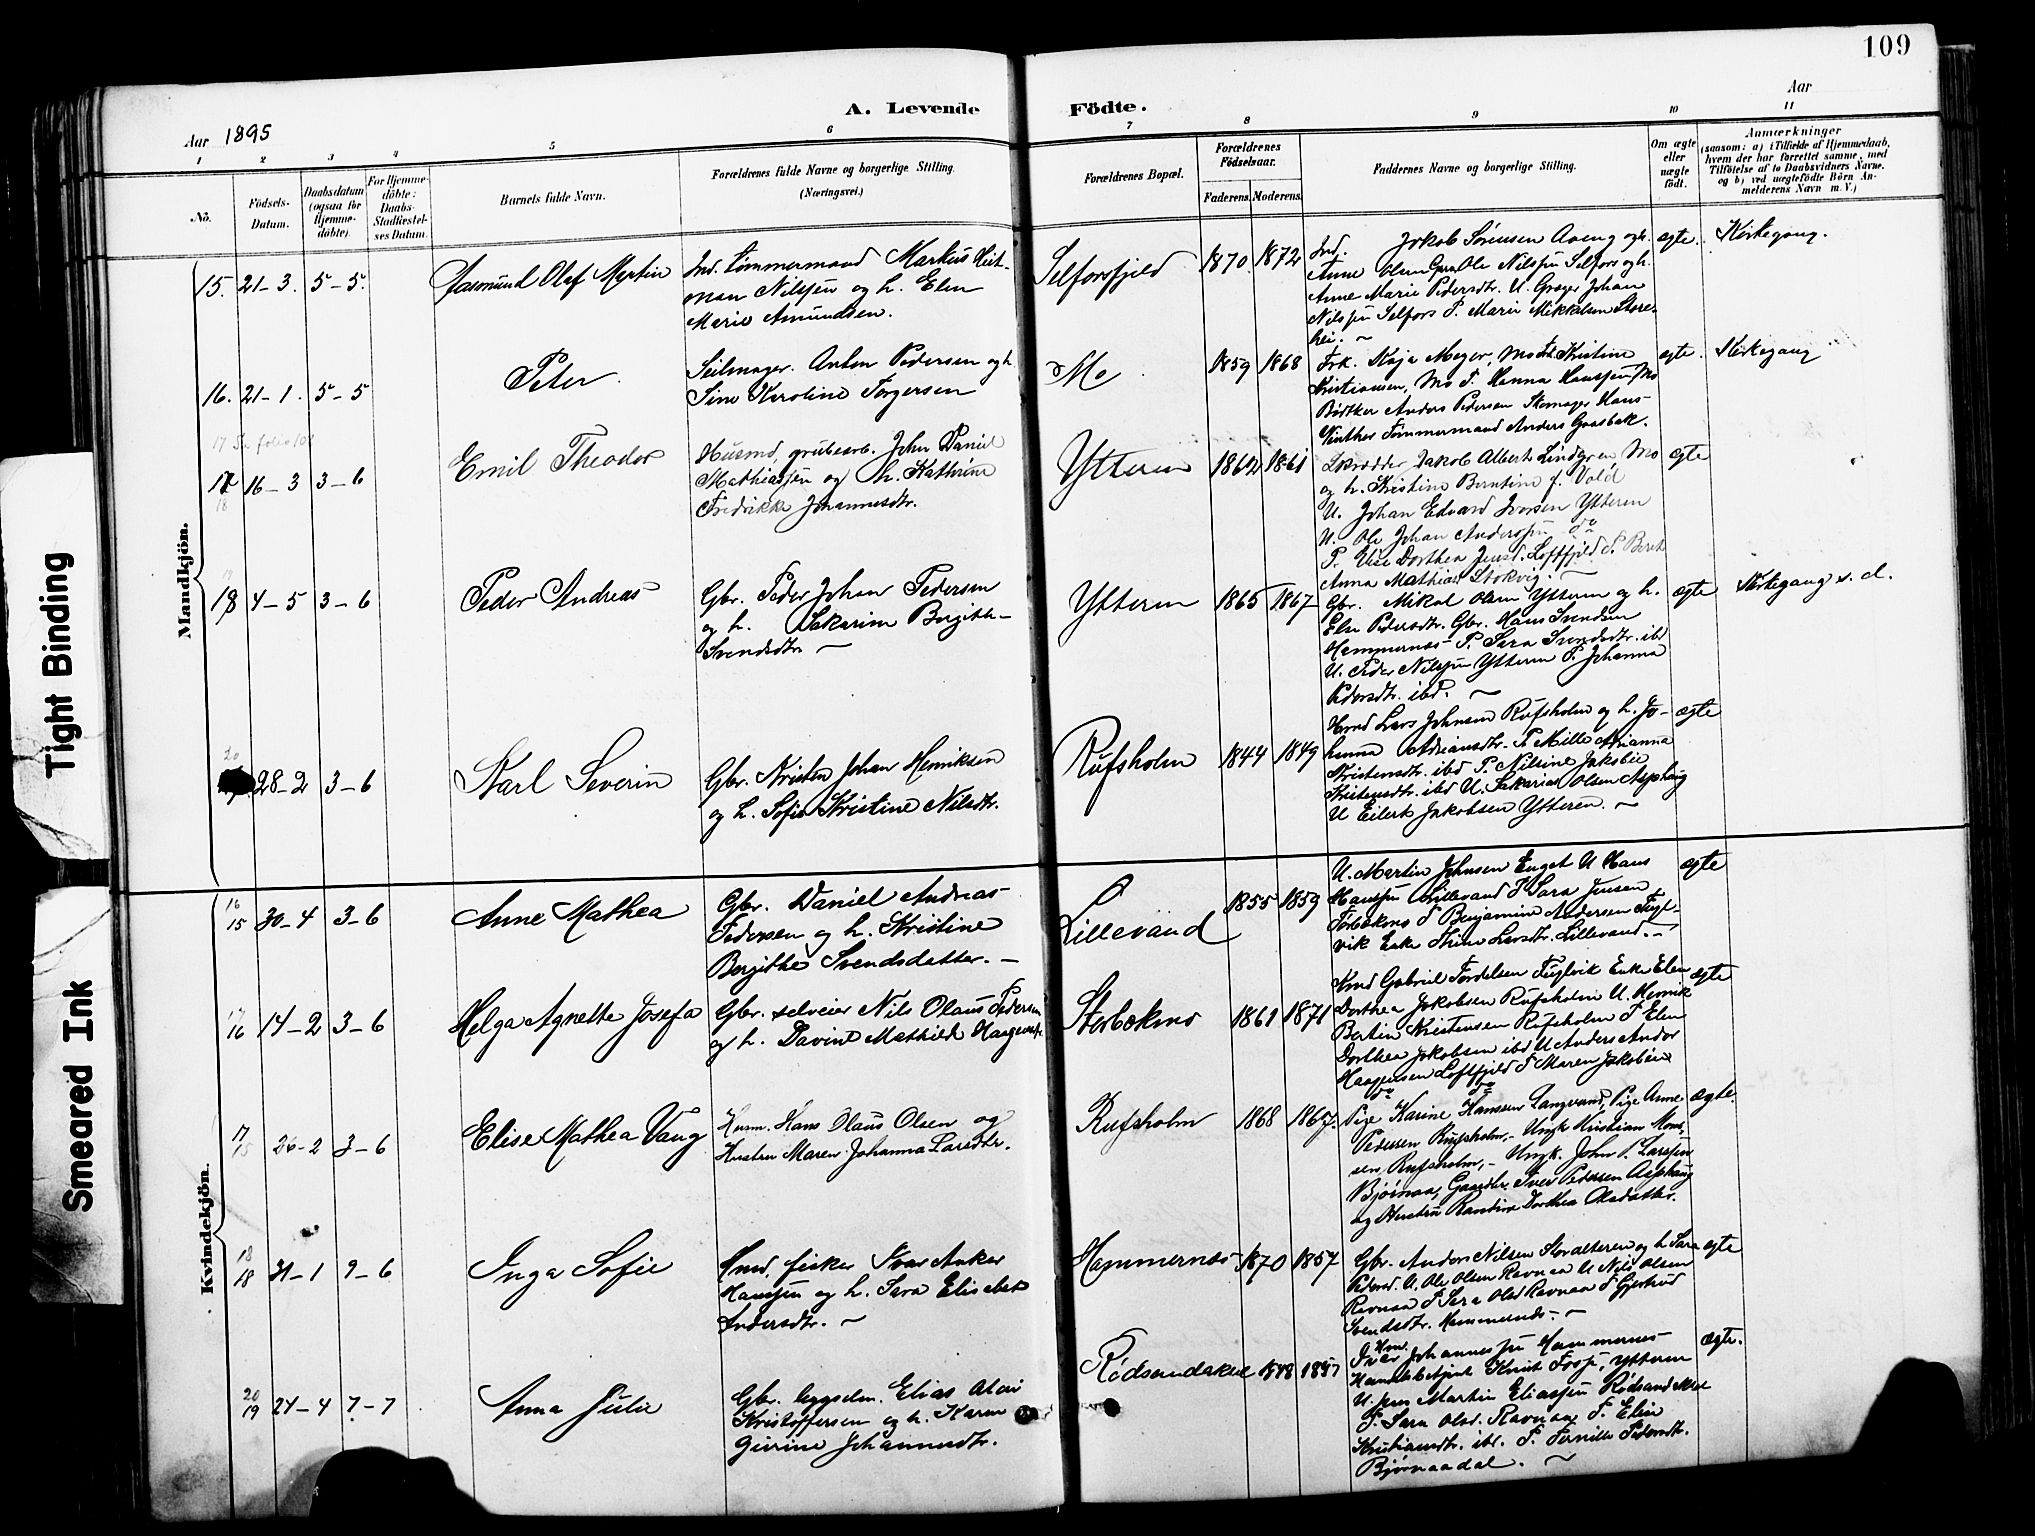 109
A. Levende Födte.
Aar 1895
Aar
1 2 3 4 5 6 7 8 9 10 11
No.
Födsels-
Datum.
Daabsdatum
(ogsaa for
Hjemme-
döbte).
For Hjemme-
döbte:
Daabs-
Stadfæstel-
ses Datum.
Barnets fulde Navn.
Forældrenes fulde Navne og borgerlige Stilling.
(Næringsvei.)
Forældrenes Bopæl.
Forældrenes
Födselsaar.
Faderens. Moderens.
Faddernes Navne og borgerlige Stilling.
Om ægte
eller
uægte
födt.
Anmærkninger
(saasom: a) i Tilfælde af Hjemmedaab,
hvem der har forrettet samme, med
Tilföielse af to Daabsvidners Navne.
og b) ved uægtefödte Börn An-
melderens Navn m. V.)
Mandkjön.
15. 21-3. 5-5. Aasmund Olaf Martin
Ind. Tømmermand Markus Heit-
man Nilssen og h. Elen
Marie Amundsen.
Selforsfjeld 1870. 1872
Ind. Jakob Sörensen Aveng og h.
Anne Olsen Ole Nilssen Selfors og h.
Anne Marie Pedersdtr. U. Johan
Nilssen Selfors P. Marie Mikkelsen Store-
hei.
ægte. Kirkegang.
16. 21-1. 5-5 Peter.
Seilmager. Anton Pedersen og h.
Sine Karoline Torgersen
Mo 1859 1868
Frk. Kaja Meyer, Mo Frk Kristine
Kristiansen, Mo P. Hanna Hanssen Mo
Bødtker Anders Pedersen Skomager Hans
Tømmermand Anders Graabek.
ægte. Kirkegang
17 Se folio
17 16-3 3-6 Emil Theodor
18
Husmd, grubearb. John Daniel
Mathiassen og h. Kathrine
Fredrikke Johannesdtr.
Ytteren 1862 1861
Skrædder Jakob Albert Lindgren Mo
og h. Kristine Berntine f. Vold
U. Johan Edvard Iversen Ytteren
U. Ole Johan Anderssen do
P. Else Dorthea Jensd. Loftfjeld P. Berit
Anna Mathias Stokvig.
ægte
19
18 4-5 3-6 Peder Andreas
Gbr. Peder Johan Pedersen
og h. Sakarine Bergitte
Svendsdtr.
Ytteren 1865 1867
Gbr. Mikal Olsen Ytteren og h.
Else Pedersdtr. Gbr. Hans Svendsen
Hammernæs P. Sara Svendsdtr. ibd
U. Peder Nilssen Ytteren P. Johanna
Pedersdtr. ibd.
ægte Kirkegang s. d.
20
28-2 3-6 Karl Severin
Gbr. Kristen Johan Henriksen
og h. Sofie Kristine Nilsdtr.
Rufsholm 1844 1849
Hmd Lars Johnsen Rufsholm og h. Jo-
hanna Adriansdtr. P. Mille Arianna
Kristensdtr. ibd P. Nilsine Jakobie
Kristensdtr. ibd U. Sakarias Olsen Asphaug
U Eilert Jakobsen Ytteren.
ægte
Kvindekjön.
16
15 30-4 3-6 Anne Mathea
Gbr. Daniel Andreas
Pedersen og h. Kristine
Bergithe Svendsdatter.
Lillevand 1855 1859
U. Martin Johnsen Enget U Hans
Hanssen Lillevand P Sara Jensen
P Benjamine Andersen Fugl-
vik Enke Larsdtr. Lillevand.
ægte
17
16 14-2 3-6 Helga Agnette Josefa
Gbr. selveier Nils Olaus Pedersen
og h. Davine Mathilde
1861 1871
Kmd Gabriel Tordelsen Fuglvik Enke Elen
Dorthea Jakobsen Rufsholm U. Henrik
Bertin Kristensen Rufsholm P Elen
Dorthea Jakobsen ibd U Anders Andor
Haagensen Loftfjeld P Maren Jakobine
do do
ægte
17
15 26-2 3-6 Elise Mathea Vang
Husm. Hans Olaus Olsen og
Hustru Maren Johanna Larsdtr.
Rufsholm 1868 1867.
Pige Karine Hansen Langvand, Pige Anne
Pedersen Rufsholm, Ungk Kristian Mons-
sen, Rufsholm, Ungk. John P. Larssen
Bjørnaa, Gaardbr. Iver Pedersen Asphaug
og Hustru Dorthea Olsdatter.
ægte.
18
18 31-1 9-6 Inga Sofie
Hmd. fisker Ivar Anker
Hanssen og h. Sara Elisabet
Andersdtr.
Hammernæs 1870 1857
Gbr. Anders Nilsen Storalteren og h Sara
Pedersd. U. Ole Olsen Ravnaa U Nils Olsen
Ravnaa P Sara Olsd Ravnaa P Gjertrud
Svendsdtr. Hammernæs.
ægte
20
19 24-4 7-7 Anna Julie
Gbr. bygselm. Elias Olai
Kristoffersen og h. Karen
Johannesdtr.
Rødsandaksel 1848 1857
Hmd.
Johannessen Hammernes
Knut Ytteren
U. Jens Martin Eliassen Rødsandaksel
P. Sara Olsd. Ravnaa P. Elin
Kristiansdtr. ibd. P. Pernille Pedersdtr.
Bjørnaadal.
ægte.
Tight Binding
Smeared Ink